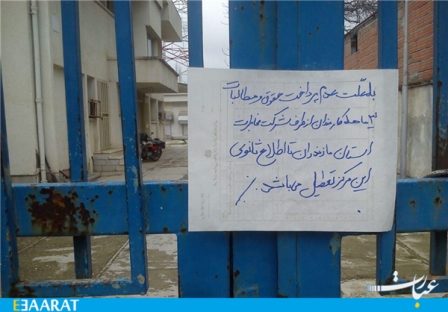 بعلت عدم پرداخت حقوق و مطالبات
۳ ماهه کارمندان از طرف شرکت مخابرات
استان مازندران تا اطلاع ثانوی
این مرکز تعطیل می باشد.
EBAARAT
عبارت